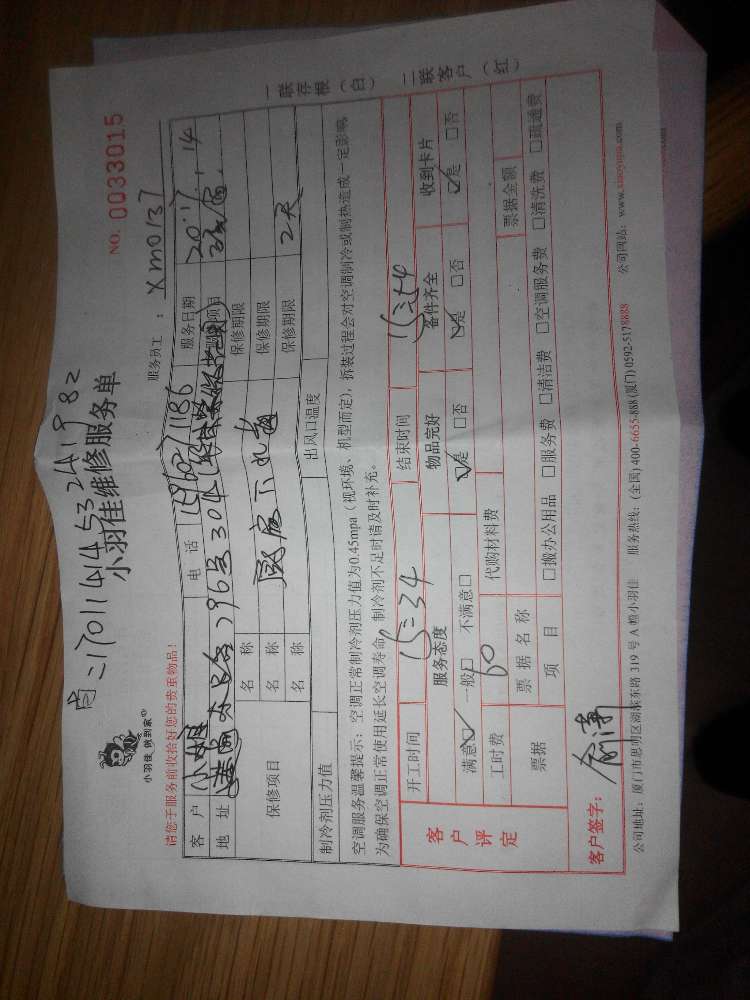 单:1701141453241982
小羽佳维修服务单
NO. 0033015
小羽佳, 做到家
服务员工 : Xm0137
请您于服务前收拾好您的贵重物品!
客 户 小姐 电 话 服务日期
地 址 296号304
保修项目 名 称 厨房下水道 保修期限
名 称 保修期限
名 称 保修期限 2天
制冷剂压力值 出风口温度
空调服务温馨提示:空调正常制冷剂压力值为0.45mpa(视环境、机型而定),拆装过程会对空调制冷或制热造成一定影响,
为确保空调正常使用延长空调寿命,制冷剂不足时请及时补充。
一联存根(白) 二联客户(红)
客户评定
开工时间 15:34 结束时间 15:54
服务态度 物品完好 备件齐全 收到卡片
满意☑ 一般□ 不满意□ ☑是 □否 ☑是 □否 ☑是 □否
工时费 60 代购材料费
票据 票 据 名 称 票据金额
项 目 □搬办公用品 □服务费 □清洁费 □空调服务费 □清洗费 □疏通费
客户签字:
公司地址:厦门市思明区湖滨东路 319 号 A 幢小羽佳 服务热线:(全国) 400-6655-888 (厦门) 0592-5178888 公司网站:www.xiaoyujia.com